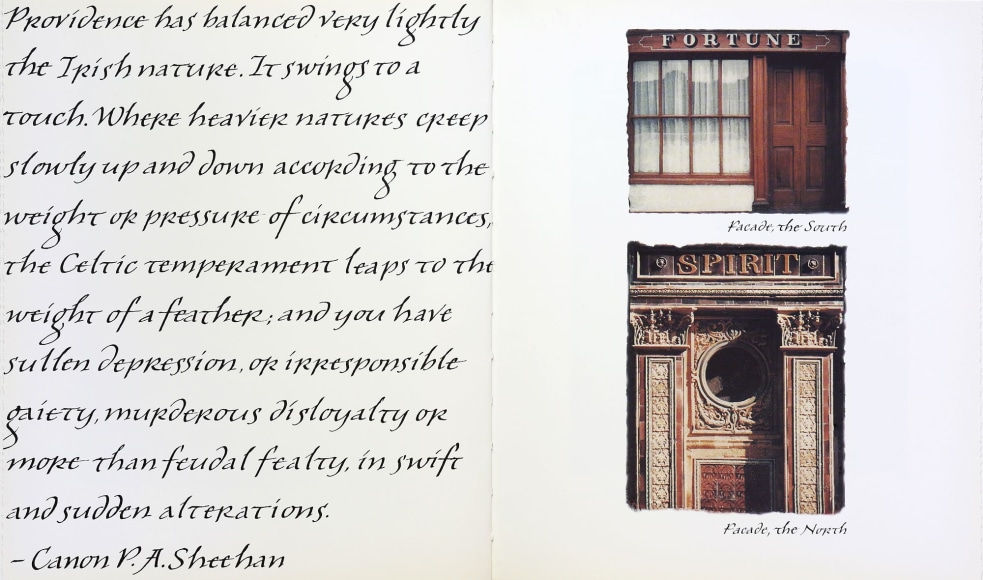 Providence has balanced very lightly
the Irish nature. It swings to a
touch. Where heavier natures creep
slowly up and down according to the
weight or pressure of circumstances,
the Celtic temperament leaps to the
weight of a feather; and you have
sullen depression, or irresponsible
gaiety, murderous disloyalty or
more than feudal fealty, in swift
and sudden alterations.
– Canon P. A. Sheehan
FORTUNE
Facade, the South
SPIRIT
Facade, the North